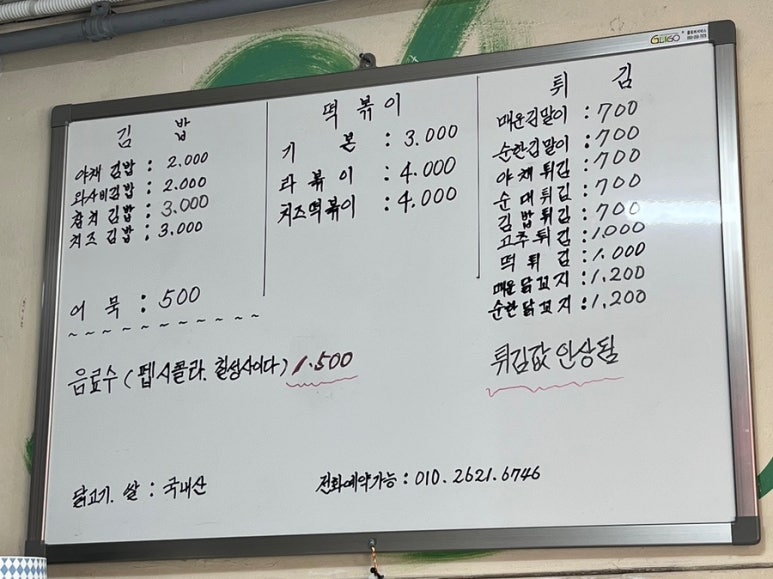 GEIGO
김 밥
야채 김밥 : 2.000
와사비김밥 : 2.000
참치 김밥 : 3.000
치즈 김밥 : 3.000
어 묵 : 500
~ ~ ~ ~ ~ ~ ~ ~ ~ ~ ~ ~
음료수 ( 펩시콜라. 칠성사이다 ) 1.500
닭고기. 쌀 : 국내산
떡 볶 이
기 본 : 3.000
라 볶 이 : 4.000
치즈떡볶이 : 4.000
튀 김
매운김말이 : 700
순한김말이 : 700
야 채 튀김 : 700
순 대 튀김 : 700
김 밥 튀김 : 700
고추 튀 김 : 1.000
떡 튀 김 : 1.000
매운 닭 꼬지 : 1.200
순한 닭 꼬지 : 1.200
튀김값 인상됨
전화예약가능 : 010.2621.6746